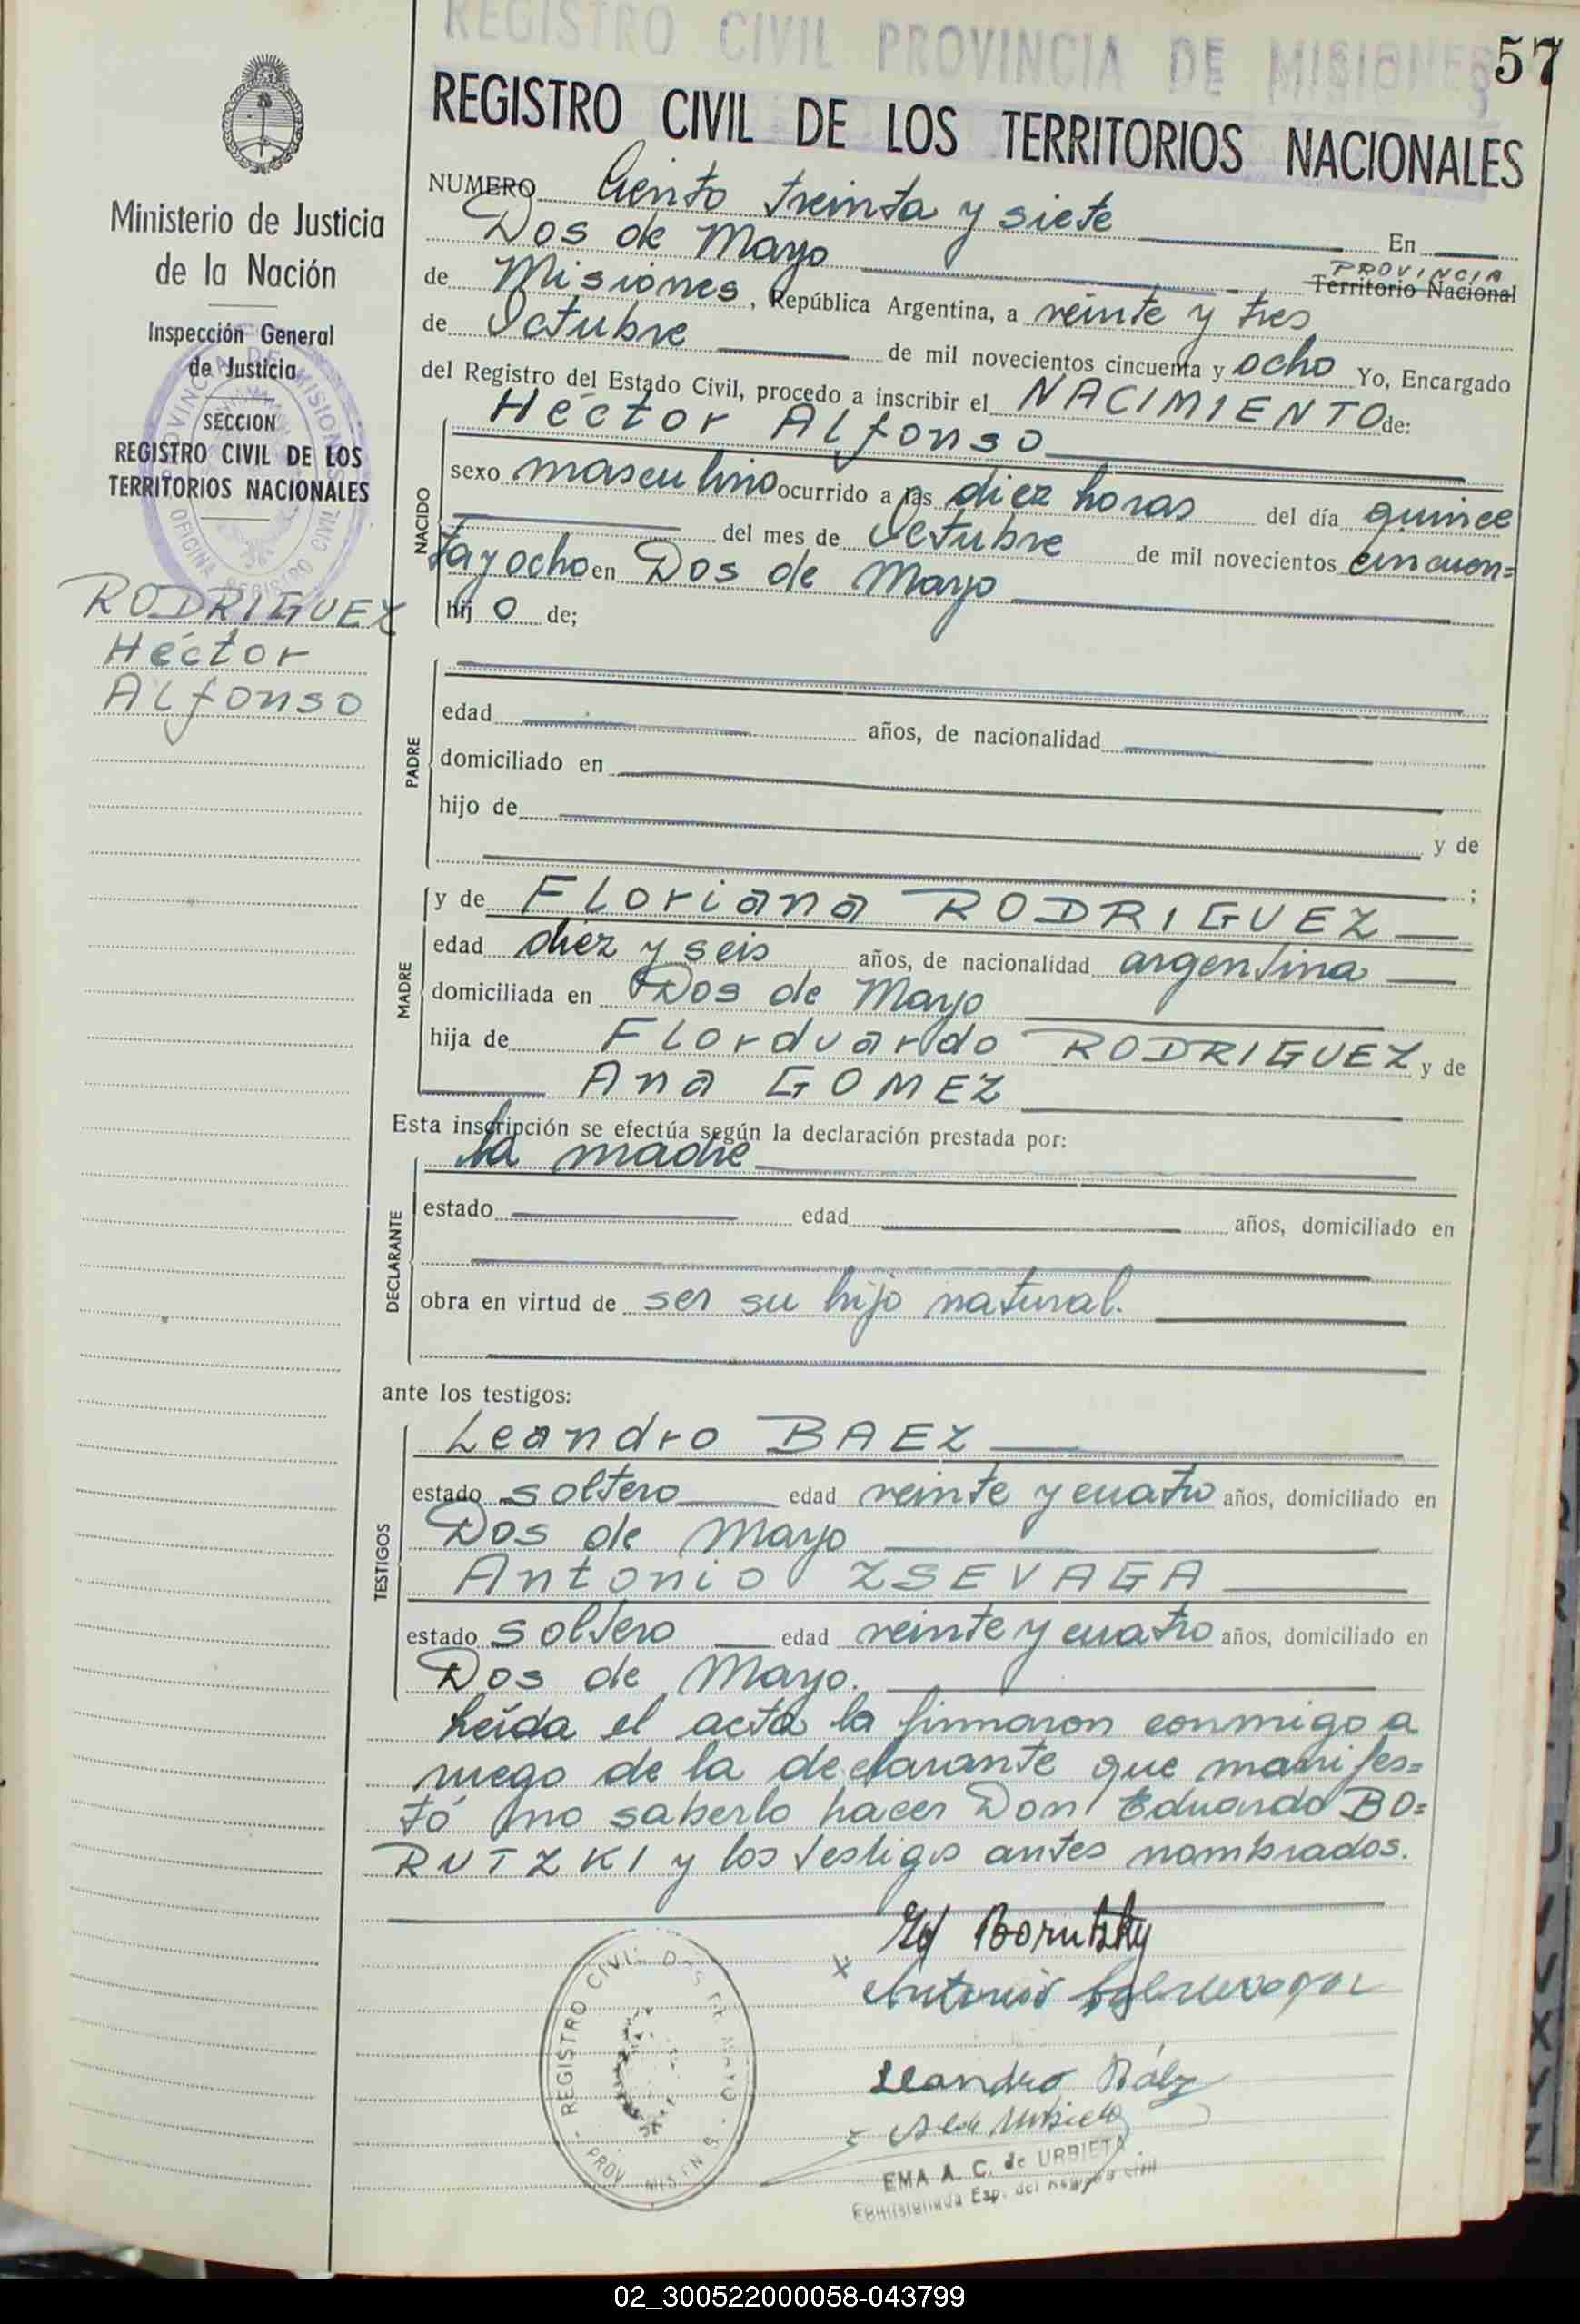 REGISTRO CIVIL PROVINCIA DE MISIONES
57
REGISTRO CIVIL DE LOS TERRITORIOS NACIONALES
Ministerio de Justicia
de la Nación
Inspección General
de Justicia
SECCION
REGISTRO CIVIL DE LOS
TERRITORIOS NACIONALES
RODRIGUEZ
Héctor
Alfonso
NUMERO Ciento treinta y siete En
Dos de Mayo PROVINCIA
Territorio Nacional
de Misiones, República Argentina, a veinte y tres
de Octubre de mil novecientos cincuenta y ocho Yo, Encargado
del Registro del Estado Civil, procedo a inscribir el NACIMIENTO de:
NACIDO
Héctor Alfonso
sexo masculino ocurrido a las diez horas del día quince
del mes de Octubre de mil novecientos cincuen=
ta y ocho en Dos de Mayo
hijo de;
PADRE
edad años, de nacionalidad
domiciliado en
hijo de
y de
;
MADRE
y de Floriana RODRIGUEZ
edad diez y seis años, de nacionalidad argentina
domiciliada en Dos de Mayo
hija de Florduardo RODRIGUEZ y de
Ana GOMEZ
Esta inscripción se efectúa según la declaración prestada por:
DECLARANTE
la madre
estado edad años, domiciliado en
obra en virtud de ser su hijo natural.
ante los testigos:
TESTIGOS
Leandro BAEZ
estado soltero edad veinte y cuatro años, domiciliado en
Dos de Mayo
Antonio ZSEVAGA
estado soltero edad veinte y cuatro años, domiciliado en
Dos de Mayo.
Leída el acta la firmaron conmigo a
ruego de la declarante que manifes=
tó no saberlo hacer Don Eduardo BO=
RUTZKI y los testigos antes nombrados.
Ed Borutzky
x Antonio
Leandro Báez
EMA A. C. de URBIETA
Esp. del Registro Civil
REGISTRO CIVIL DOS DE MAYO
PROV. MISIONES
02_300522000058-043799